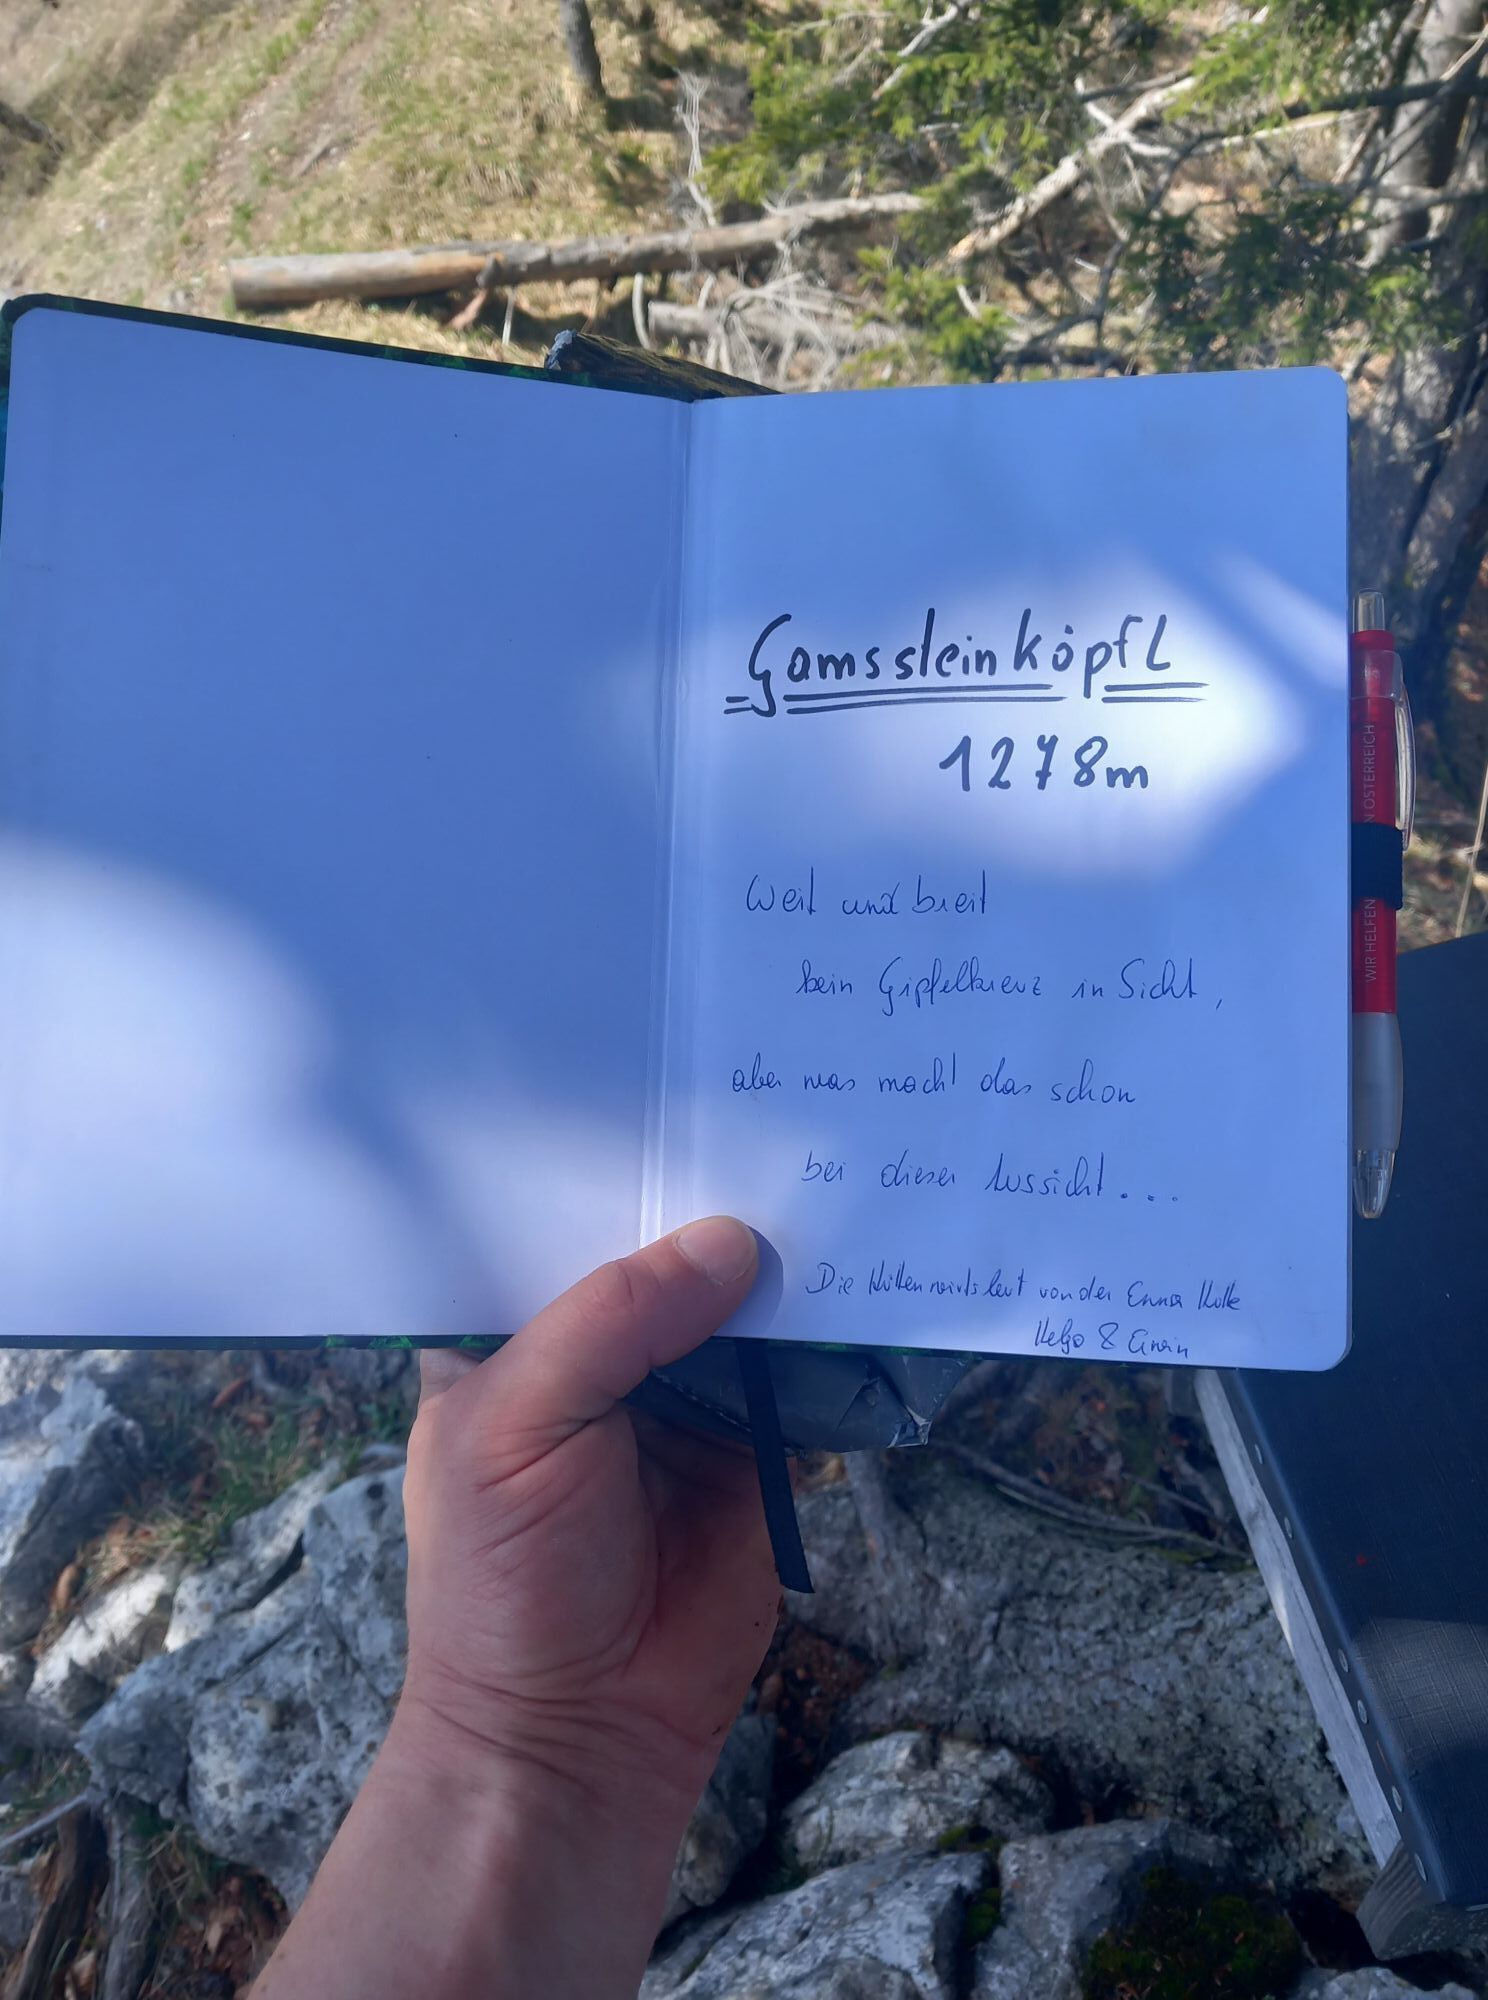 Gamssteinköpfl
1278m
Weit und breit
kein Gipfelkreuz in Sicht,
aber was macht das schon
bei dieser Aussicht...
Die Hüttenwirtsleut von der Enna Hütte
Helga & Erwin
WIR HELFEN
N ÖSTERREICH